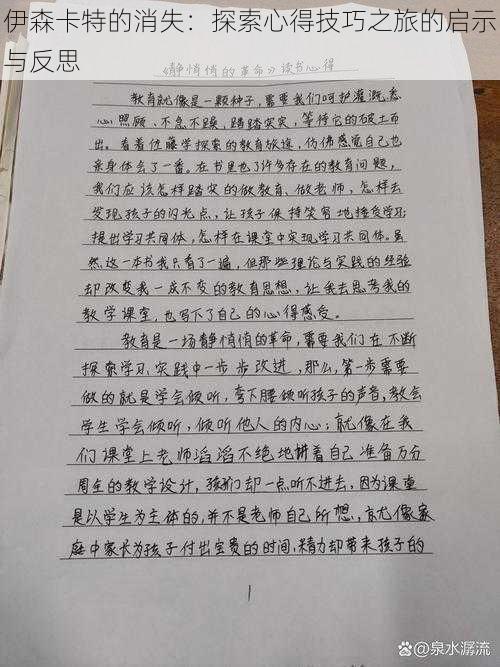 伊森卡特的消失：探索心得技巧之旅的启示
与反思
《静悄悄的革命》读书心得
教育就像是一颗种子，需要我们呵护灌溉，悉
心照顾、不急不躁，踏踏实实，等待它的破土而
出。看着佐藤学探索的教育旅途，仿佛感觉自己也
亲身体会了一番。在书里也了许多存在的教育问题，
我们应该怎样踏实的做教育、做老师，怎样去
发现孩子的闪光点，让孩子保持笑容地接受学习
提出学习共同体，怎样在课堂中实现学习共同体。虽
然这一本书我只看了一遍，但那些理论与实践的经验
却改变我一成不变的教育思想，让我去思考我的
教学课堂，也写下了自己的心得感受。
教育是一场静悄悄的革命，需要我们在不断
探索学习、实践中一步步改进，那么，第一步需要
做的就是学会倾听，弯下腰倾听孩子的声音，教会
学生学会倾听，倾听他人的内心；就像在我
们课堂上老师滔滔不绝地讲着自己准备万分
周全的教学设计，孩子们却一点听不进去，因为课堂
是以学生为主体的，并不是老师自己所想，就像家
庭中家长为孩子付出宝贵的时间、精力却带来孩子的
1
@泉水潺流